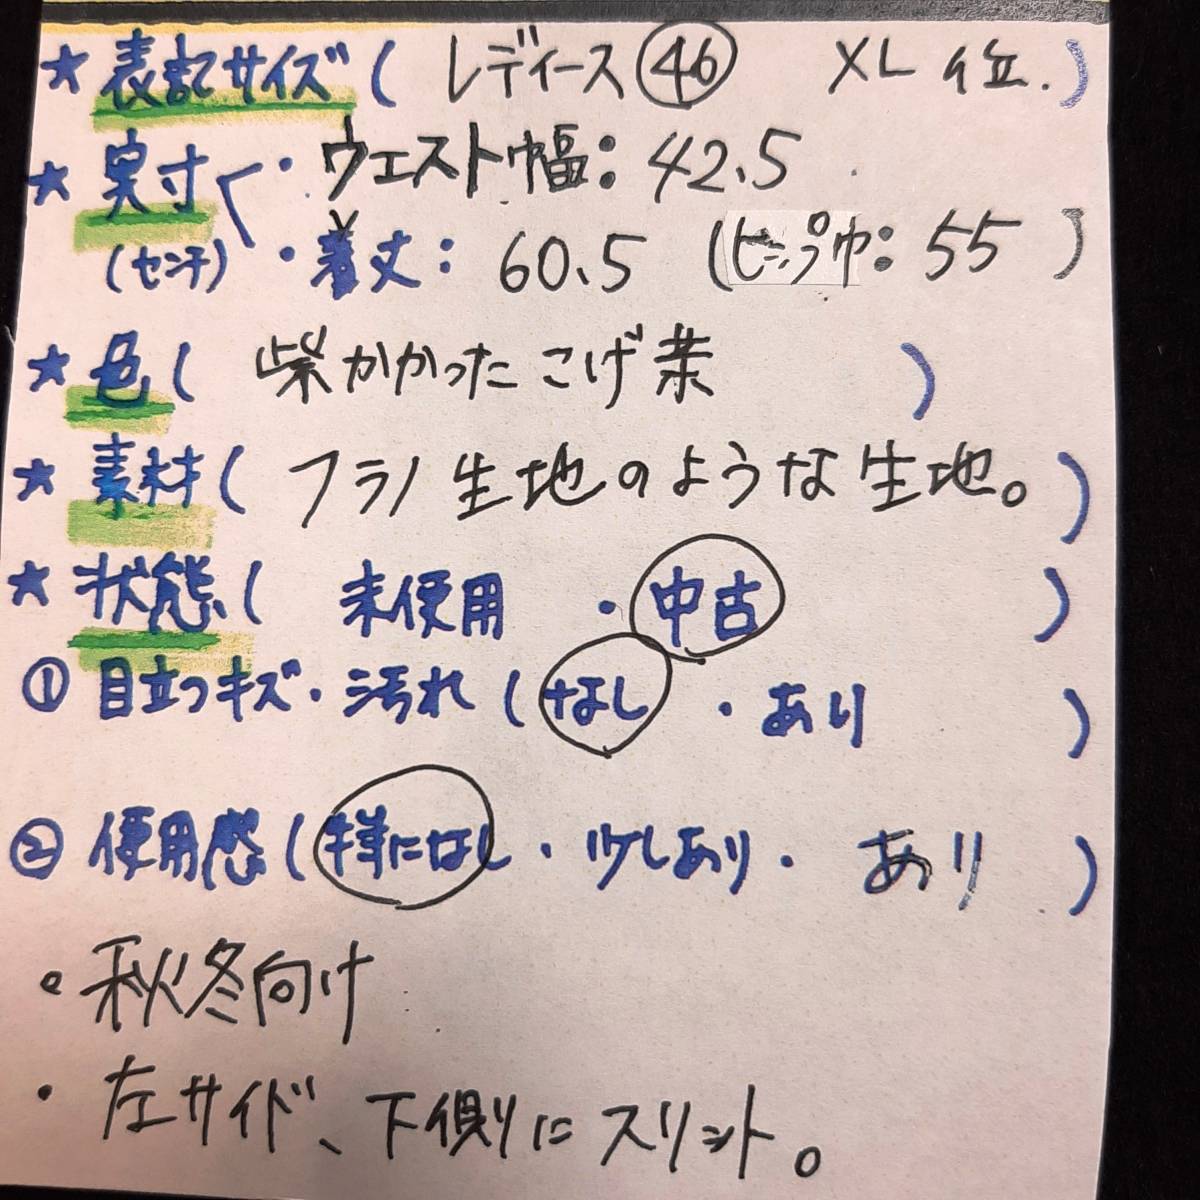 ★表記サイズ( レディース㊻ XL位.)
★実寸く・ウエスト幅:42.5
(センチ)・着丈:60.5 (ヒップ巾:55)
★色( 紫かかったこげ茶 )
★素材(フラノ生地のような生地。)
★状態( 未使用 ・中古 )
①目立つキズ・汚れ(なし ・あり )
②使用感(特になし・少しあり・ あり )
。秋冬向け
・左サイド、下側にスリット。